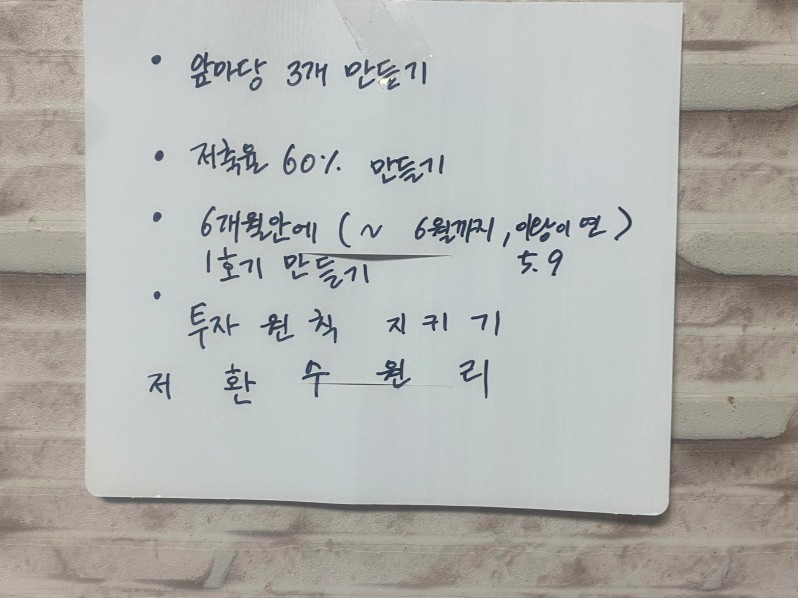 • 앞마당 3개 만들기
• 저축율 60% 만들기
• 6개월안에 (~ 6월까지, 이왕이면)
1호기 만들기 5.9
• 투자 원칙 지키기
저 환 수 원 리